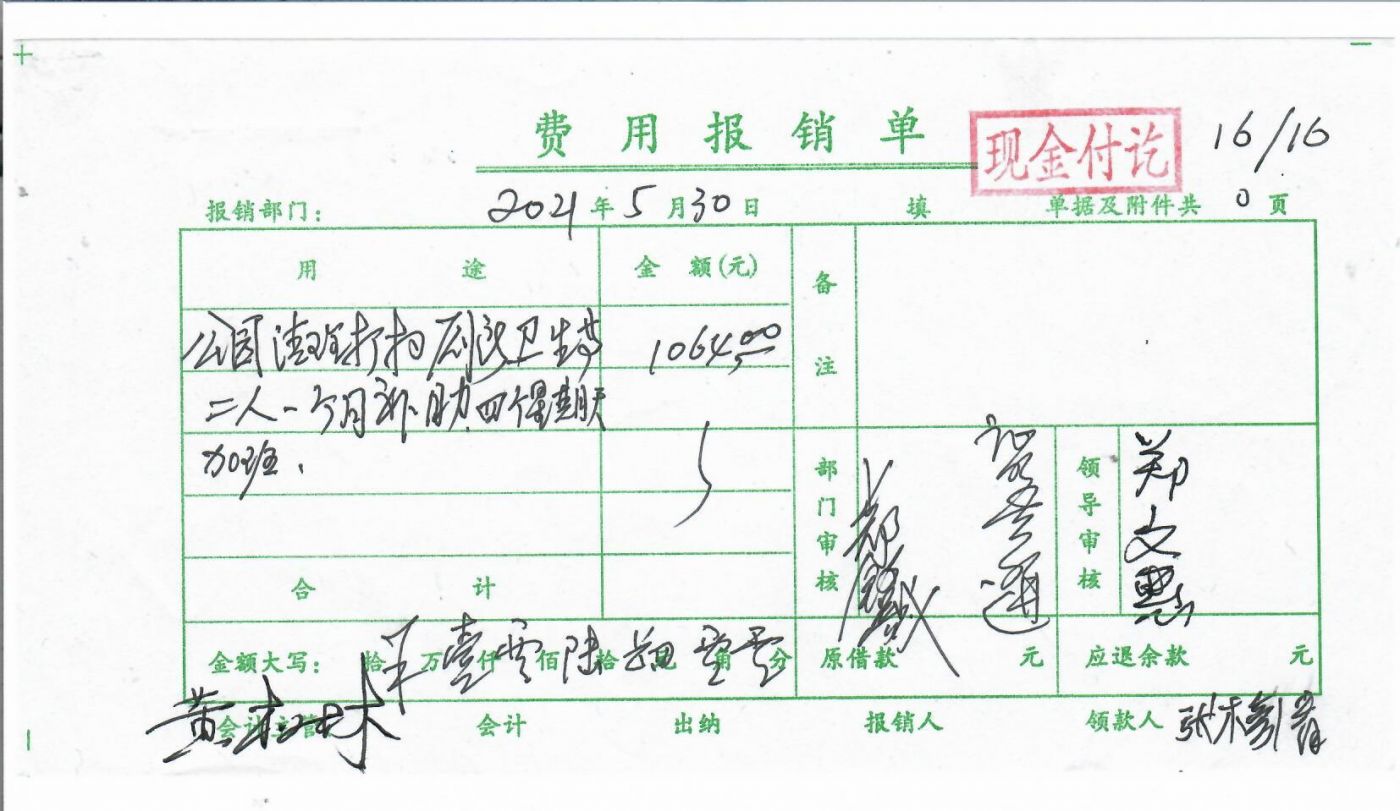 费用报销单
现金付讫
16/16
报销部门： 2021年5月30日 填 单据及附件共 0 页
用途 金额(元) 备注
公园清理打扫厕所卫生等 1064.00
二人一个月补助.四个星期天
加班.
部门审核 领导审核 郑文慧
合计
金额大写： 拾 万壹仟零佰陆拾肆元零角零分 原借款 元 应退余款 元
会计主管 会计 出纳 报销人 领款人